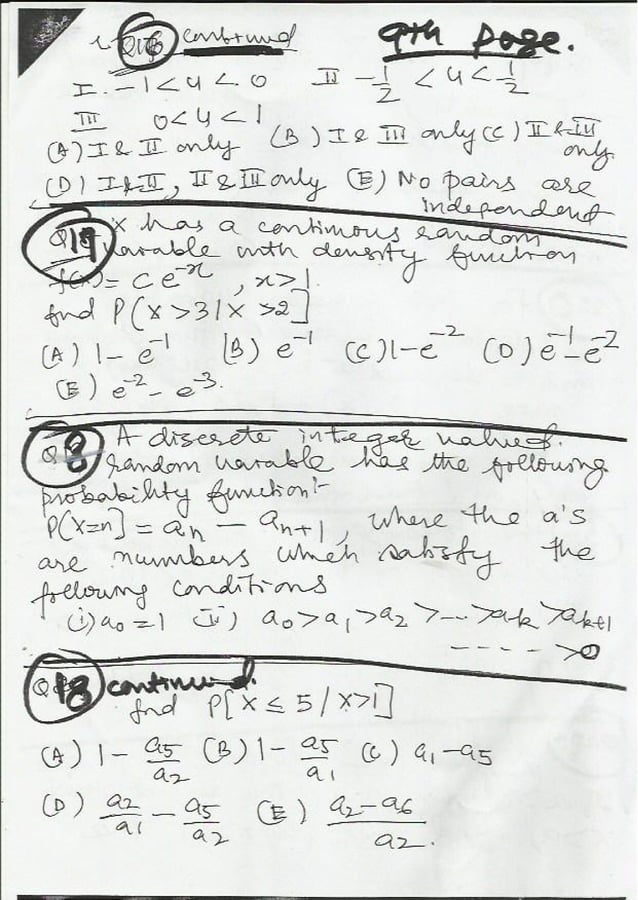 Q16 continued 9th page.
I. -1<u<0 II -1/2 <u< 1/2
III 0<u<1
(A) I & II only (B) I & III only (C) II & III only.
(D) I & II, II & III only (E) No pairs are independent
Q17 X has a continous random
variable with density function
f(x)= c e^-x , x>1
find P(X>3|X>2]
(A) 1- e^-1 (B) e^-1 (C) 1-e^-2 (D) e^-1-e^-2
(E) e^-2 - e^-3.
Q18 A discrete integer valued.
random variable has the following.
probability function:-
P[X=n] = an - an+1, where the a's
are numbers which satisfy the
following conditions
(i) a0=1 ii) a0>a1>a2>--->ak>ak+1
----->0
Q18 continued.
find P[X ≤ 5 / X>1]
(A) 1- a5/a2 (B) 1- a5/a1 (C) a1-a5
(D) a2/a1 - a5/a2 (E) a2-a6/a2.